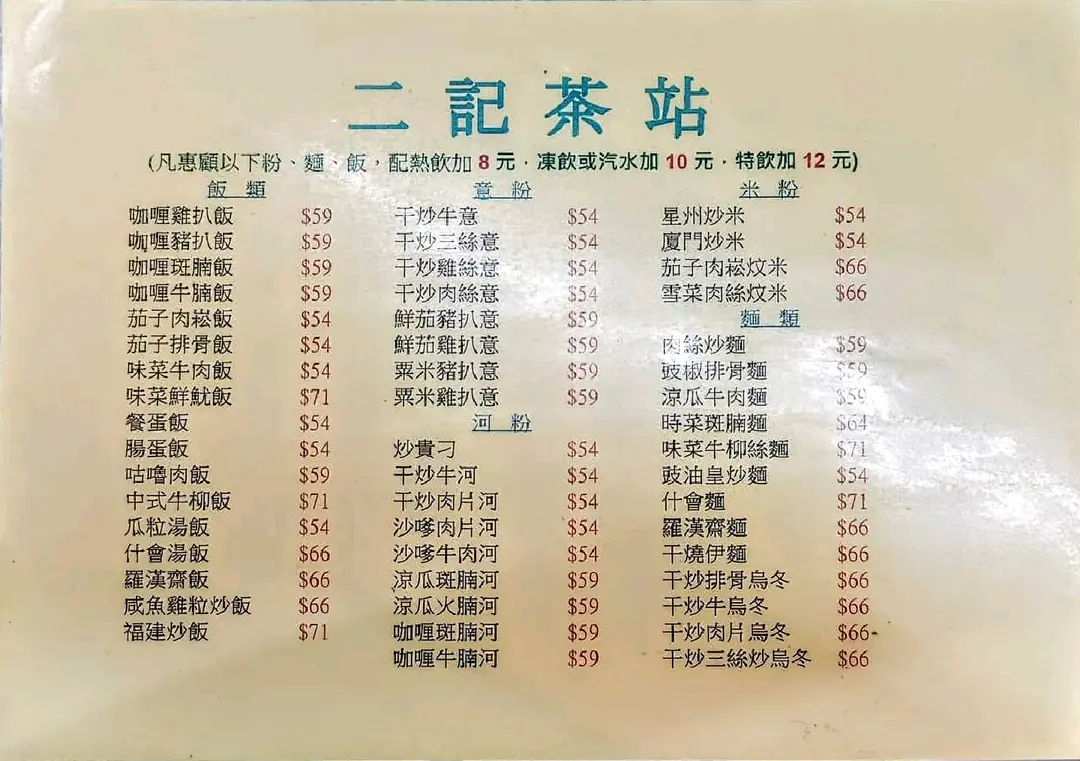 二記茶站
(凡惠顧以下粉、麵、飯，配熱飲加 8 元．凍飲或汽水加 10 元．特飲加 12 元)
飯 類
咖喱雞扒飯 $59
咖喱豬扒飯 $59
咖喱斑腩飯 $59
咖喱牛腩飯 $59
茄子肉崧飯 $54
茄子排骨飯 $54
味菜牛肉飯 $54
味菜鮮魷飯 $71
餐蛋飯 $54
腸蛋飯 $54
咕嚕肉飯 $59
中式牛柳飯 $71
瓜粒湯飯 $54
什會湯飯 $66
羅漢齋飯 $66
咸魚雞粒炒飯 $66
福建炒飯 $71
意 粉
干炒牛意 $54
干炒三絲意 $54
干炒雞絲意 $54
干炒肉絲意 $54
鮮茄豬扒意 $59
鮮茄雞扒意 $59
粟米豬扒意 $59
粟米雞扒意 $59
河 粉
炒貴刁 $54
干炒牛河 $54
干炒肉片河 $54
沙嗲肉片河 $54
沙嗲牛肉河 $54
涼瓜斑腩河 $59
涼瓜火腩河 $59
咖喱斑腩河 $59
咖喱牛腩河 $59
米 粉
星州炒米 $54
廈門炒米 $54
茄子肉崧炆米 $66
雪菜肉絲炆米 $66
麵 類
肉絲炒麵 $59
豉椒排骨麵 $59
涼瓜牛肉麵 $59
時菜斑腩麵 $64
味菜牛柳絲麵 $71
豉油皇炒麵 $54
什會麵 $71
羅漢齋麵 $66
干燒伊麵 $66
干炒排骨烏冬 $66
干炒牛烏冬 $66
干炒肉片烏冬 $66
干炒三絲炒烏冬 $66